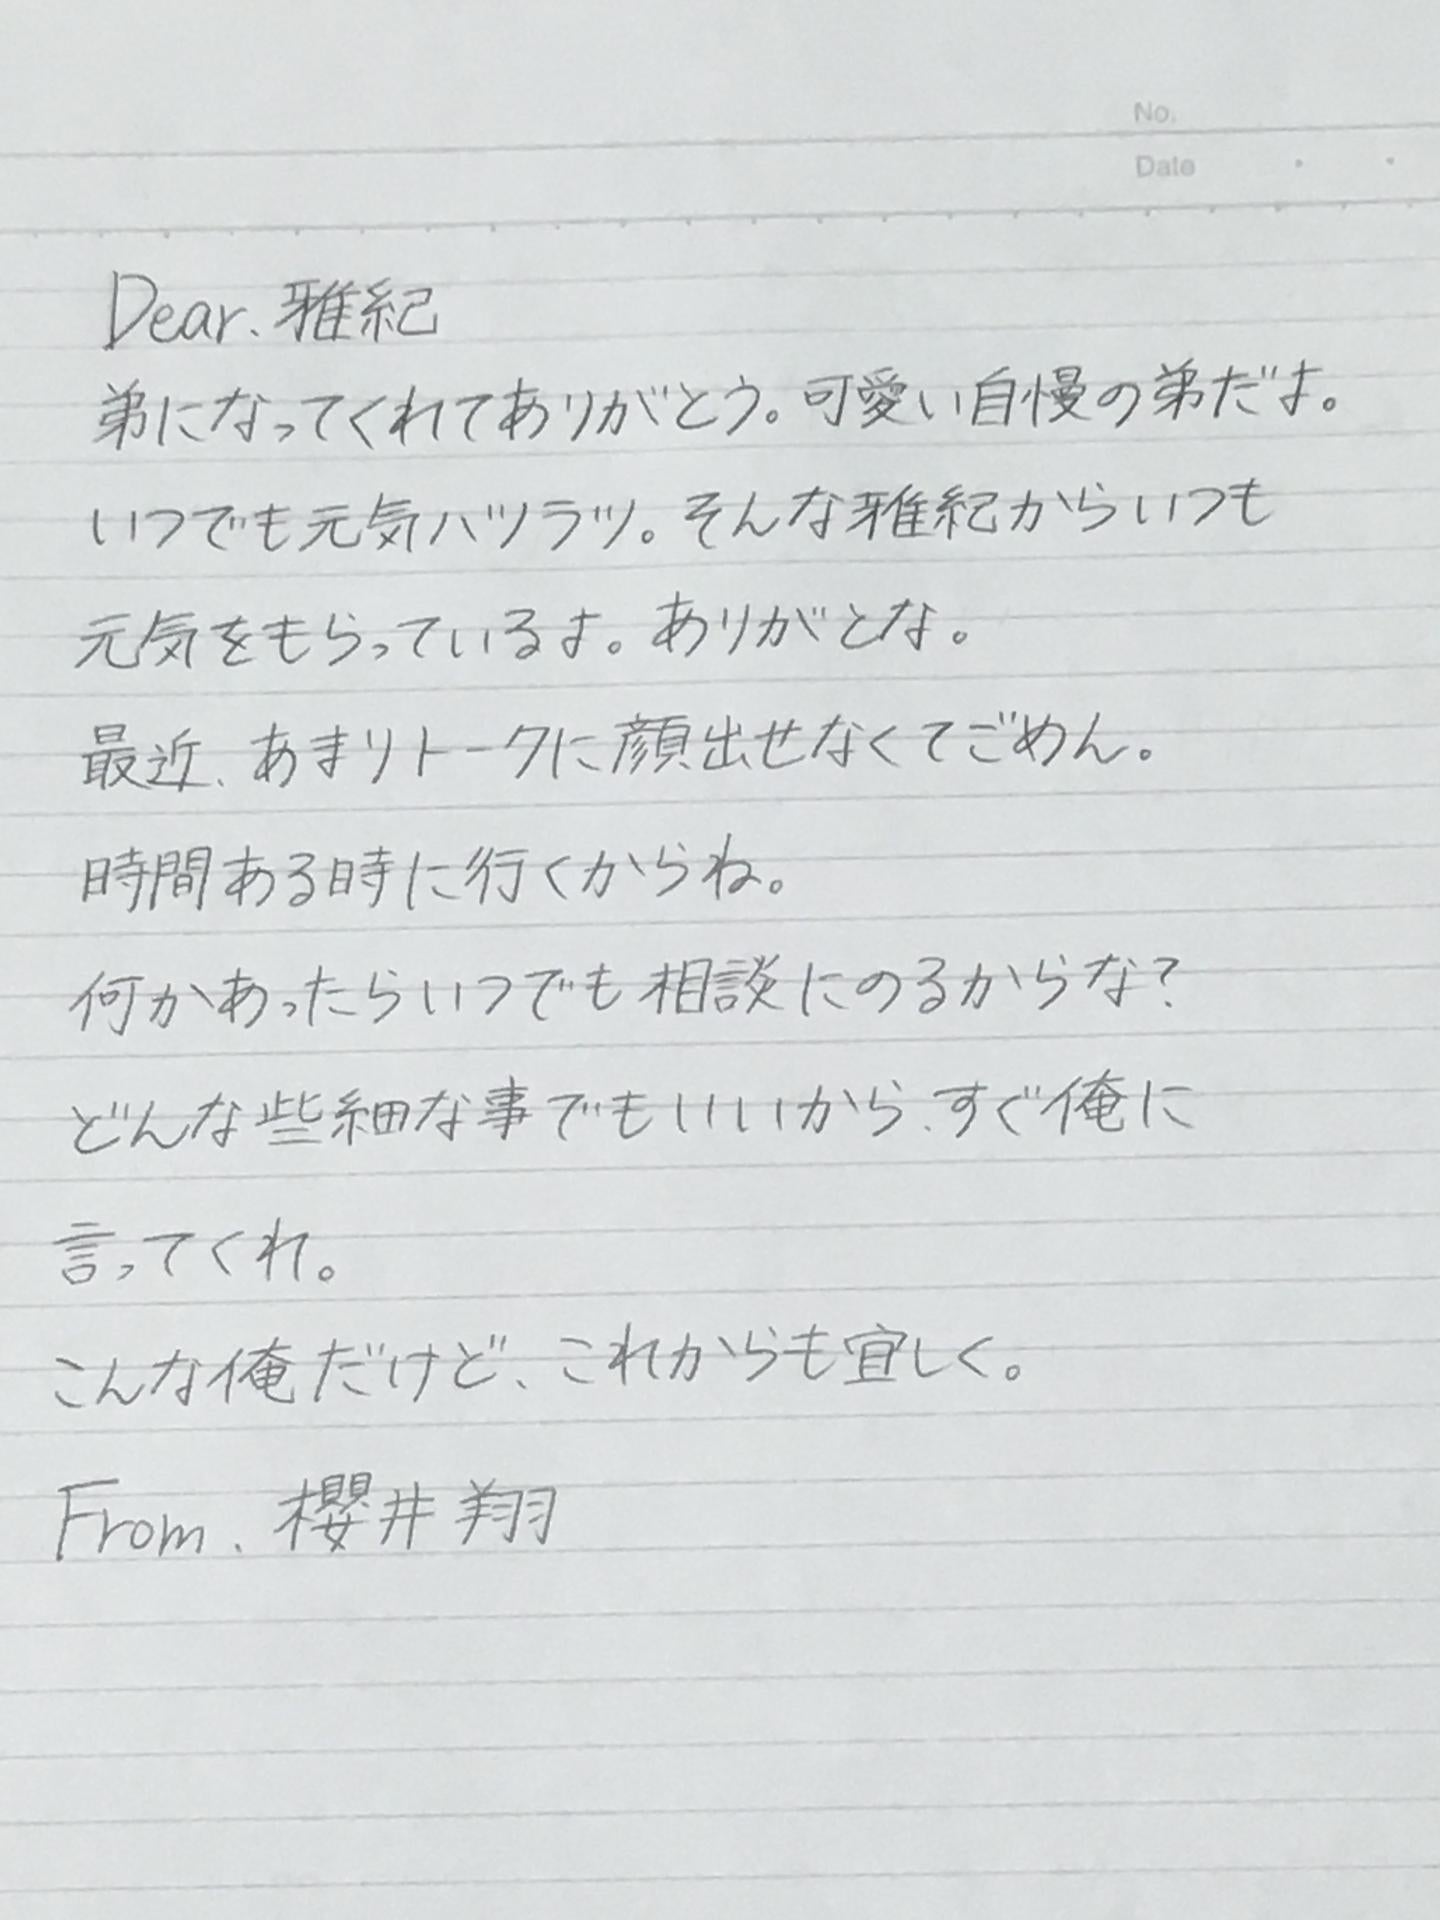 No.
Date
Dear.雅紀
弟になってくれてありがとう。可愛い自慢の弟だよ。
いつでも元気ハツラツ。そんな雅紀からいつも
元気をもらっているよ。ありがとな。
最近、あまりトークに顔出せなくてごめん。
時間ある時に行くからね。
何かあったらいつでも相談にのるからな?
どんな些細な事でもいいから、すぐ俺に
言ってくれ。
こんな俺だけど、これからも宜しく。
From.櫻井翔